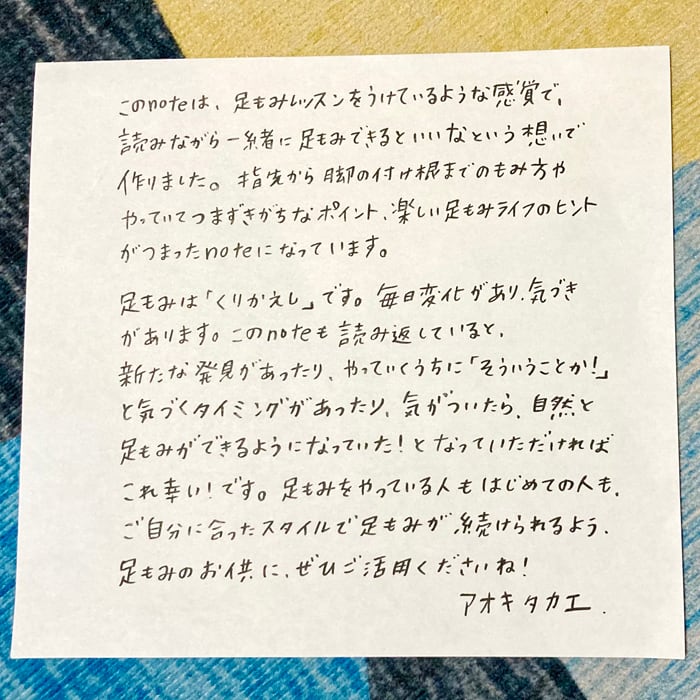 このnoteは、足もみレッスンをうけているような感覚で、
読みながら一緒に足もみできるといいなという想いで
作りました。指先から脚の付け根までのもみ方や
やっていてつまずきがちなポイント、楽しい足もみライフのヒント
がつまったnoteになっています。
足もみは「くりかえし」です。毎日変化があり、気づき
があります。このnoteも読み返していると、
新たな発見があったり、やっていくうちに「そういうことか!」
と気づくタイミングがあったり、気がついたら、自然と
足もみができるようになっていた!となっていただければ
これ幸い!です。足もみをやっている人もはじめての人も、
ご自分に合ったスタイルで足もみが続けられるよう、
足もみのお供に、ぜひご活用くださいね!
アオキタカエ.